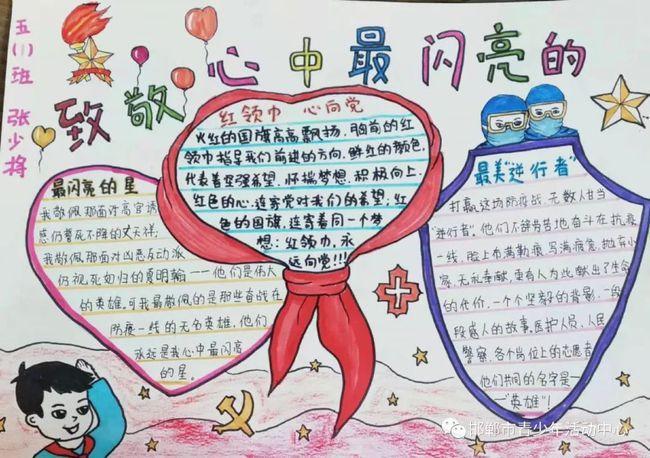 五(1)班 张少将
致敬心中最闪亮的
红领巾 心向党
火红的国旗高高飘扬，胸前的红
领巾指导我们前进的方向，鲜红的颜色，
代表着坚强希望，怀揣梦想，积极向上.
红色的心，连寄党对我们的希望；红
色的国旗，连寄着同一个梦
想：红领巾，永
远向党!!!
最闪亮的星
我敬佩那面许高官诱
惑仍誓死不降的文天祥；
我敬佩那面对凶恶反动派
仍视死如归的夏明翰——他们是伟大
的英雄。可我最敬佩的是那些奋战在
防疫一线的无名英雄，他们
永远是我心中最闪亮
的星。
最美“逆行者”
打赢这场防疫战，无数人甘当
“逆行者”。他们不辞劳苦地奋斗在抗疫
一线，脸上布满勒痕，写满疲惫，抛弃小
家，无私奉献，更有人为此献出了生命
的代价，一个个坚毅的背影，一段
段感人的故事，医护人员、人民
警察，各个岗位上的志愿者
他们共同的名字是—
—“英雄”！
邯郸市青少年活动中心